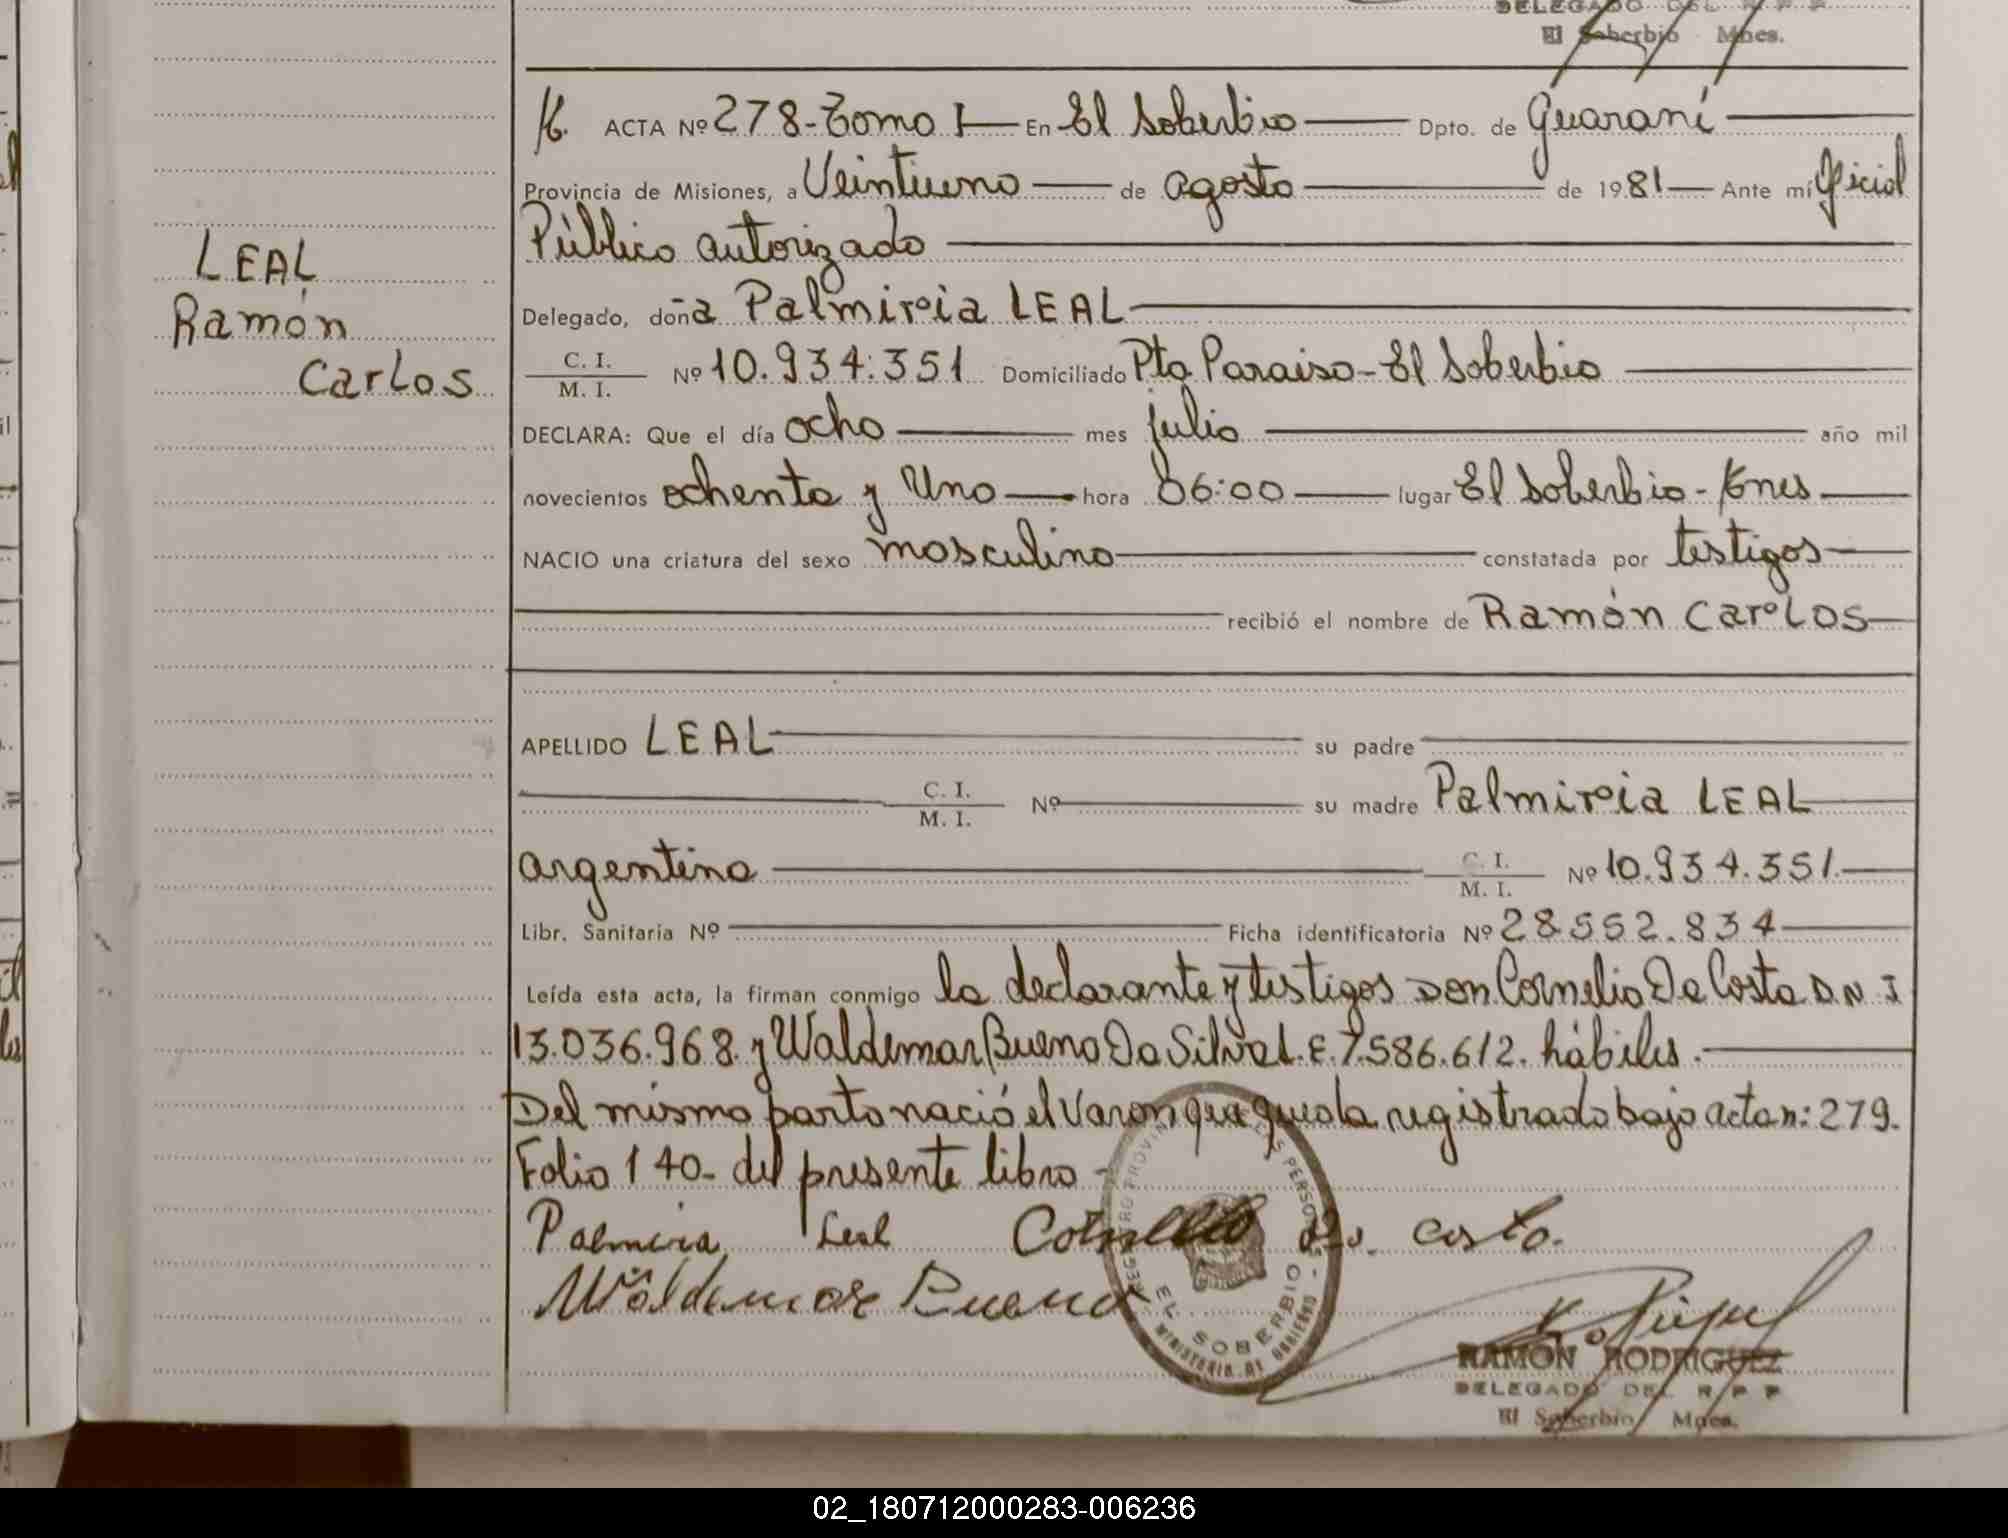 DELEGADO DEL R P P
El Soberbio Mnes.
ACTA Nº 278-Tomo I En El Soberbio Dpto. de Guaraní
Provincia de Misiones, a Veintiuno de agosto de 1981 Ante mí Oficial
Público autorizado
LEAL
Ramón
Carlos
Delegado, doña Palmiria LEAL
C. I.
M. I. Nº 10.934.351 Domiciliado Pto Paraiso-El Soberbio
DECLARA: Que el día ocho mes julio año mil
novecientos ochenta y Uno hora 06:00 lugar El Soberbio-Mnes
NACIO una criatura del sexo masculino constatada por testigos
recibió el nombre de Ramón Carlos
APELLIDO LEAL su padre
C. I.
M. I. Nº su madre Palmiria LEAL
argentina C. I.
M. I. Nº 10.934.351.
Libr. Sanitaria Nº Ficha identificatoria Nº 28552.834
Leída esta acta, la firman conmigo la declarante y testigos Don Cornelio Da Costa D.N.I
13.036.968. y Waldemar Bueno Da Silva L.E.7.586.612. hábiles.
Del mismo parto nació el Varon que queda registrado bajo acta n: 279.
Folio 140- del presente libro-
Palmira Leal Cornelio da costa.
Waldemar Bueno
REGISTRO PROVINCIAL DE LAS PERSONAS
EL SOBERBIO
MINISTERIO DE GOBIERNO
RAMON RODRIGUEZ
DELEGADO DEL R P P
El Soberbio Mnes.
02_180712000283-006236